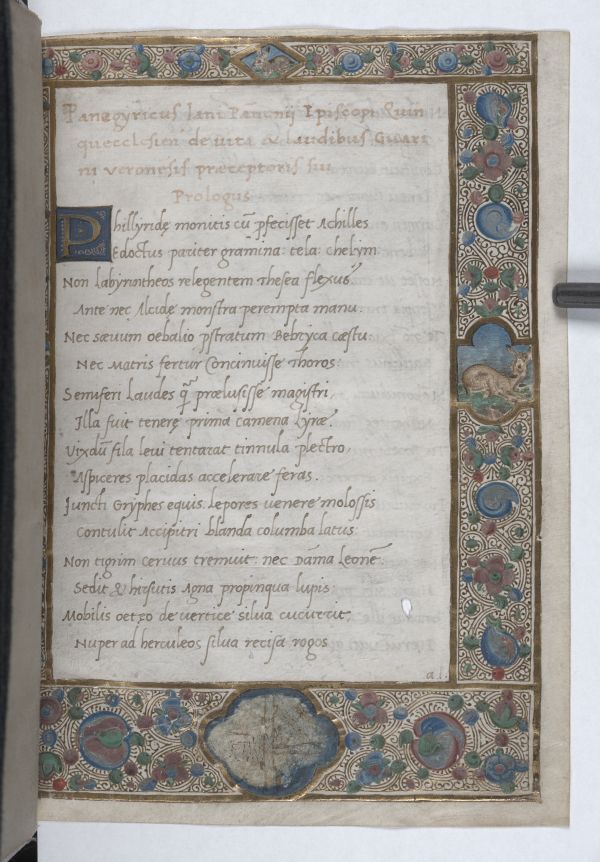 Panegyricus Iani Pannonij Episcopi Quin
queecclesien de uita & laudibus Guari
ni veronesis præceptoris sui
Prologus
Phillyridę monitis cū pfecisset Achilles
Edoctus pariter gramina: tela: chelym
Non labyrintheos relegentem thesea flexus,
Ante nec Alcidę monstra perempta manu.
Nec sæuum oebalio pstratum Bebryca cæstu
Nec Matris fertur Concinuisse thoros
Semiferi Laudes q̄ prælusisse magistri,
Illa fuit tenerę prima camena lyræ.
Vixdū fila leui tentarat tinnula plectro,
Aspiceres placidas accelerare feras.
Iuncti Gryphes equis: lepores uenere molossis
Contulit Accipitri blanda columba latus:
Non tigrim Ceruus tremuit: nec Dāma Leonē:
Sedit & hirsutis Agna propinqua lupis:
Mobilis oetęo de uertice silua cucurrit,
Nuper ad herculeos silua recisa rogos
a.1.